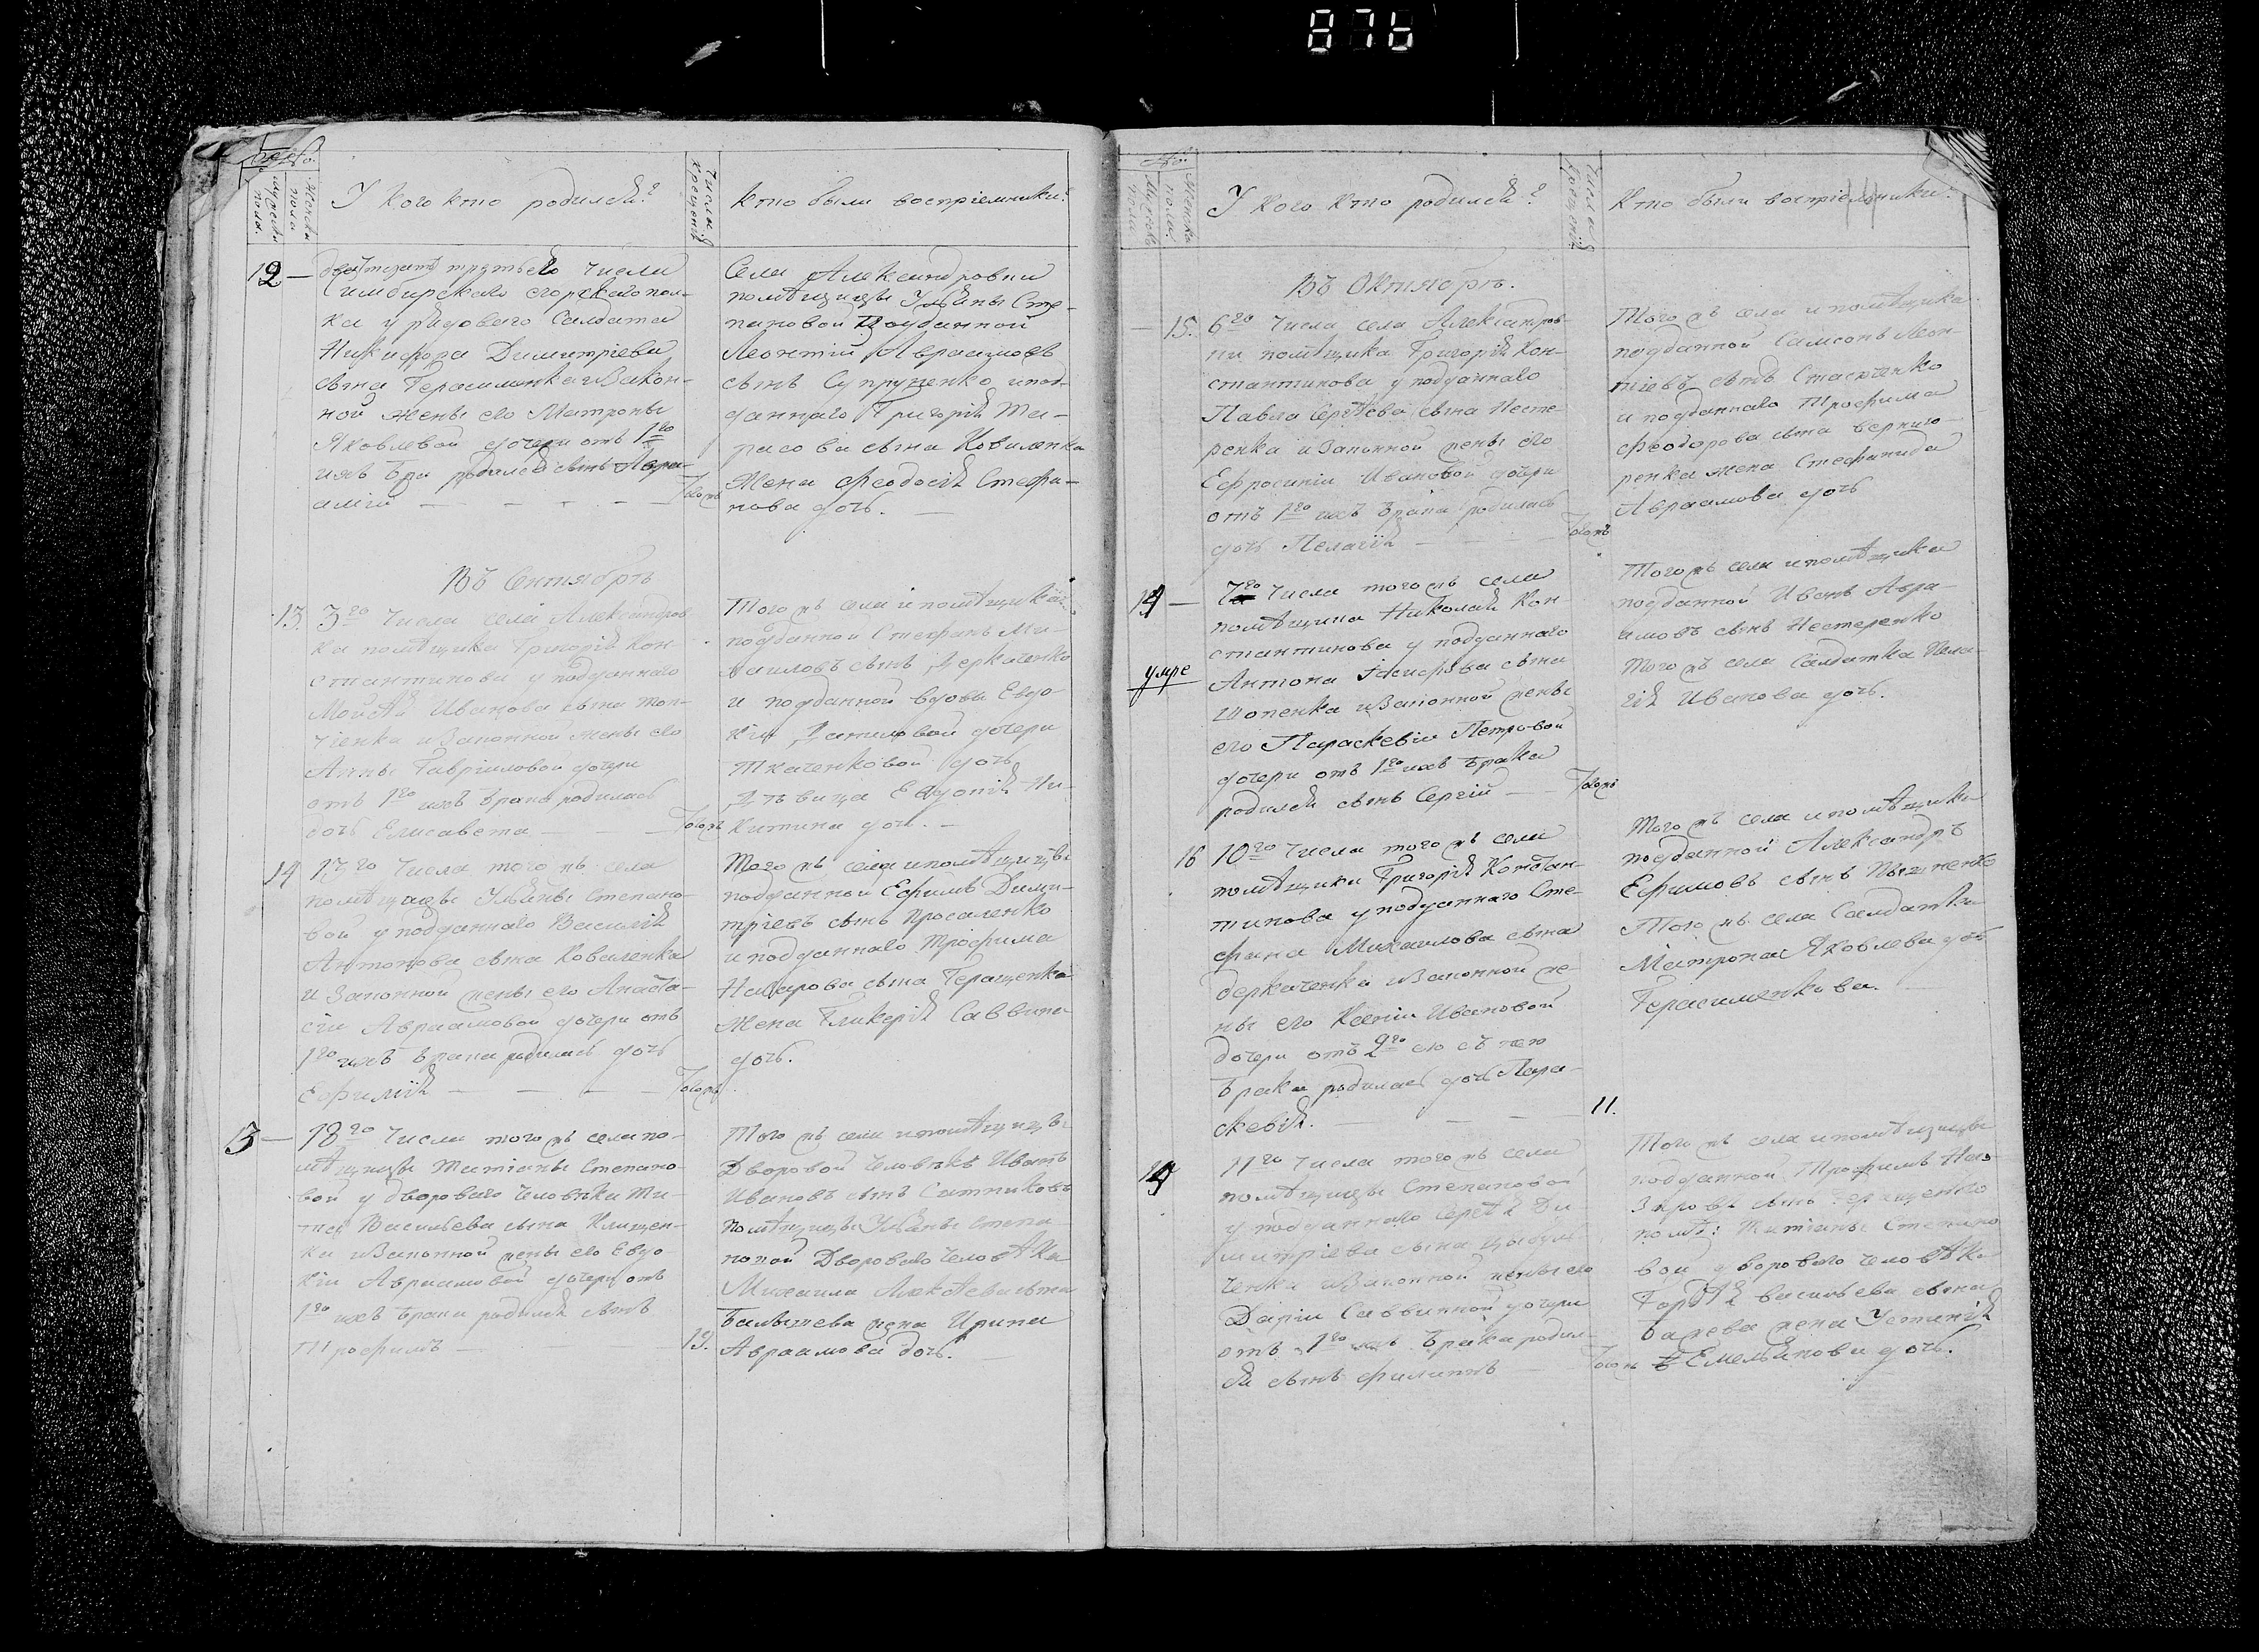 876
Число
мужеска пола.
Женска пола
У кого кто родился?
Число крещенія
кто были воспріемники?
12 —
двадцать третьего числа
Симбирскаго егорскаго пол-
ка у рядоваго Салдата
Никифора Димитріева
сына Герасименка и закон-
ной жены его Матроны
Яковлевой дочери отъ 1го
ихъ бра родился сынъ Авра-
амій — — — —
Тогожъ
Села Александровки
помѣщицы Ульяны Сте-
пановой подданной
Леонтій Авраамовъ
сынъ Супруненко и под-
даннаго Григорія
сына Коваленка
Жена Феодосія Стефа-
нова дочь. —
Въ Сентябрѣ
13.
3го числа села Александров-
ки помѣщика Григорія Кон-
стантинова у подданнаго
Моисѣя Иванова сына
и законной жены его
Анны Гавріиловой дочери
отъ 1го ихъ брака родилась
дочь Елисавета — — —
Тогожъ
Того жъ села и помѣщика
подданной Стефанъ Ми-
хаиловъ сынъ Деркаченко
и подданной вдовы Евдо-
кіи Даниловой дочери
Ткаченковой дочь
Дѣвица Евдокія Ни-
китина дочь. —
14
13го числа того жъ села
помѣщицы Ульяны Степано-
вой у подданнаго Василія
Антонова сына Коваленка
и законной жены его Анаста-
сіи Авраамовой дочери отъ
1го ихъ брака родилась дочь
Ефимія — — — —
Тогожъ
Того жъ села и помѣщицы
подданной Ефимъ Дими-
тріевъ сынъ Просаленко
и подданнаго Трофима
Назарова сына Геращенка
Жена Гликерія Саввина
дочь.
13 —
18го числа того жъ села по-
мѣщицы Татіаны Степано-
вой у двороваго человѣка Ти-
та Васильева сына Клищен-
ка и законной жены его Евдо-
кіи Авраамовой дочери отъ
1го ихъ брака родился сынъ
Трофимъ —
19.
Того жъ села и помѣщицы
Дворовой человѣкъ Иванъ
Ивановъ сынъ Ситниковъ
помѣщицы Ульяны Степа-
новой Двороваго человѣка
Михаила Алексѣева сына
Балышева жена Ирина
Авраамова дочь. —
Мужеска пола
Женска пола.
У кого кто родился?
Числа крещенія
Кто были воспріемники?
Въ Октябрѣ.
— 15.
6го числа села Александров-
ки помѣщика Григорія Кон-
стантинова у подданнаго
Павла Сергѣева сына Несте-
ренка и законной жены его
Ефросиніи Ивановой дочери
отъ 1го ихъ брака родилась
дочь Пелагія — — —
Тогожъ
Того жъ села и помѣщика
подданной Самсонъ Леон-
тіевъ сынъ
и подданнаго Трофима
Феодорова сына
ренка жена Стефанида
Авраамова дочь
14 —
умре
7го числа того жъ села
помѣщика Николая Кон-
стантинова у подданнаго
Антона сына
и законной жены
его Параскевіи Петровой
дочери отъ 1го ихъ брака
родился сынъ Сергій — —
Тогожъ
Того жъ села и помѣщика
подданной Иванъ Авра-
амовъ сынъ Нестеренко
Того жъ села Салдатка Пела-
гія Иванова дочь.
16
10го числа того жъ села
помѣщика Григорія Констан-
тинова у подданнаго Сте-
фана Михаилова сына
деркаченка и законной же-
ны его Ксеніи Ивановой
дочери отъ 2го его съ нею
брака родилась дочь Пара-
скевія. — — —
11.
Того жъ села и помѣщика
подданной Александръ
Ефимовъ сынъ
Того жъ села Салдатка
Матрона Яковлева дочь
Герасименкова.
15
11го числа того жъ села
помѣщицы Степановой
у подданнаго Сергѣя Ди-
митріева сына Цыбуль-
ченка и законной жены его
Даріи Саввиной дочери
отъ 1го ихъ брака родил-
ся сынъ Филиппъ
Тогожъ
Того жъ села и помѣщицы
подданной Трофимъ На-
заровъ сынъ Геращенко
помѣ: Татіаны Степано
вой двороваго человѣка
Гордѣя васильева сына
жена Устинія
Емельянова дочь.